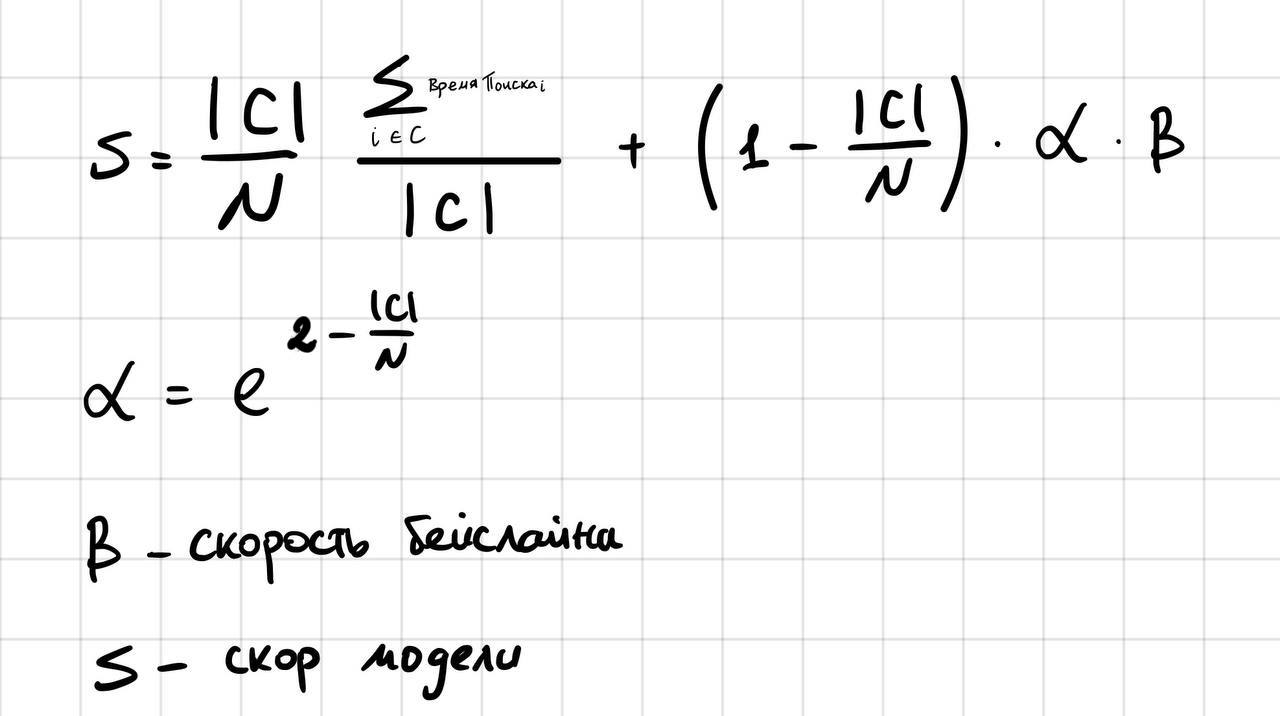 S = |C|/N ∑_{i ∈ C} Время Поиска_i / |C| + (1 - |C|/N) · α · B
α = e^{2 - |C|/N}
B - скорость бейслайна
S - скор модели